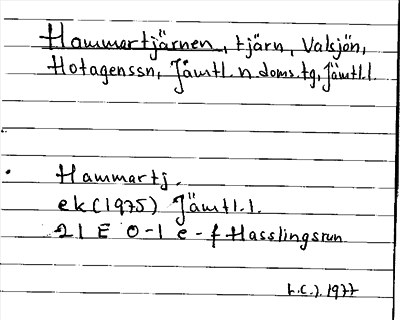 Hammartjärnen, tjärn, Valsjön,
Hotagenssn, Jämtl. n doms.tg, Jämtl.l.
Hammartj.
ek (1975) Jämtl.l.
21 E 0-1 e-f Hasslingsrun
1977